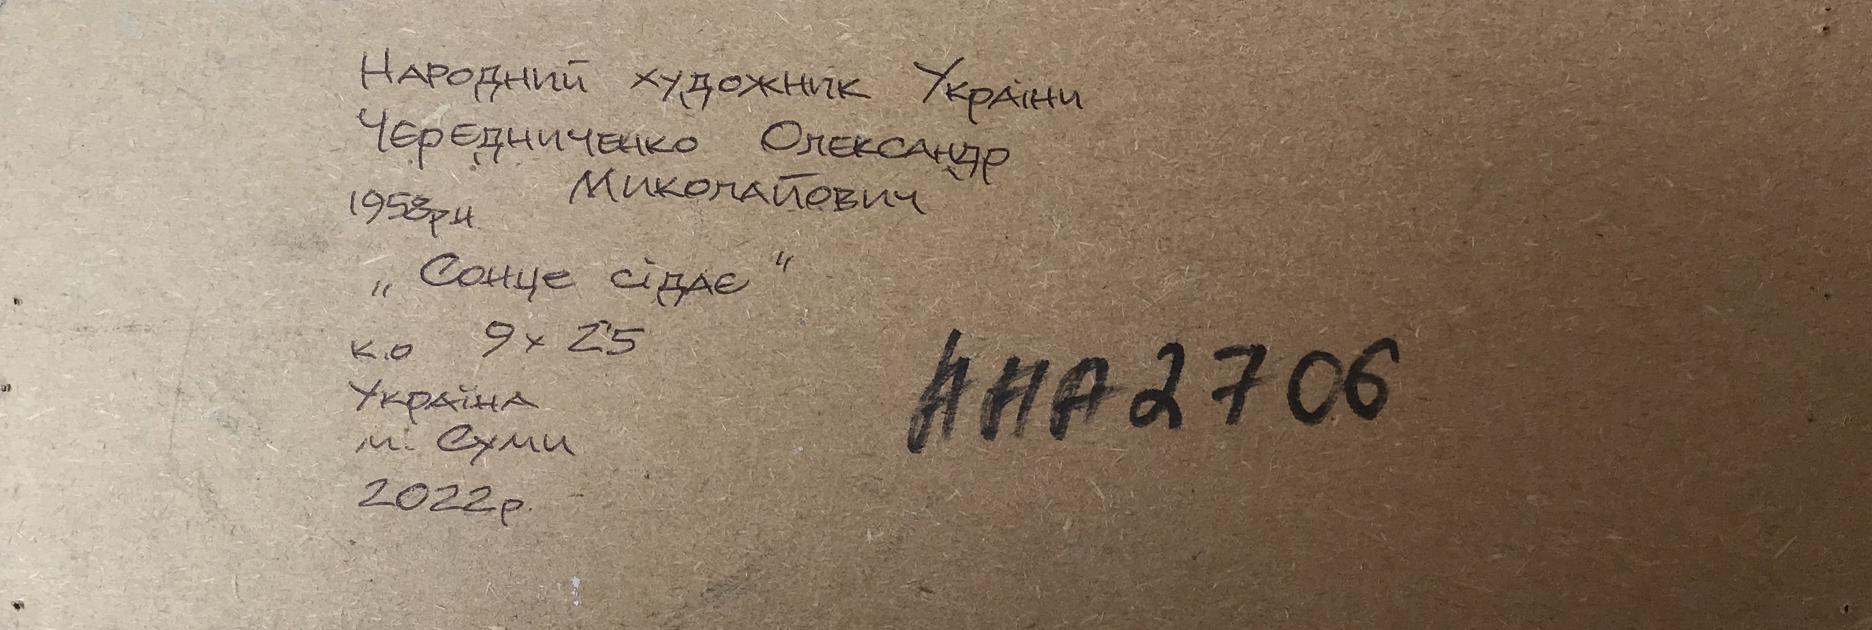 Народний художник України
Чередниченко Олександр
Миколайович
1958рн
„Сонце сідає"
к.о 9х25
Україна
м. Суми
2022р.
ННА2706